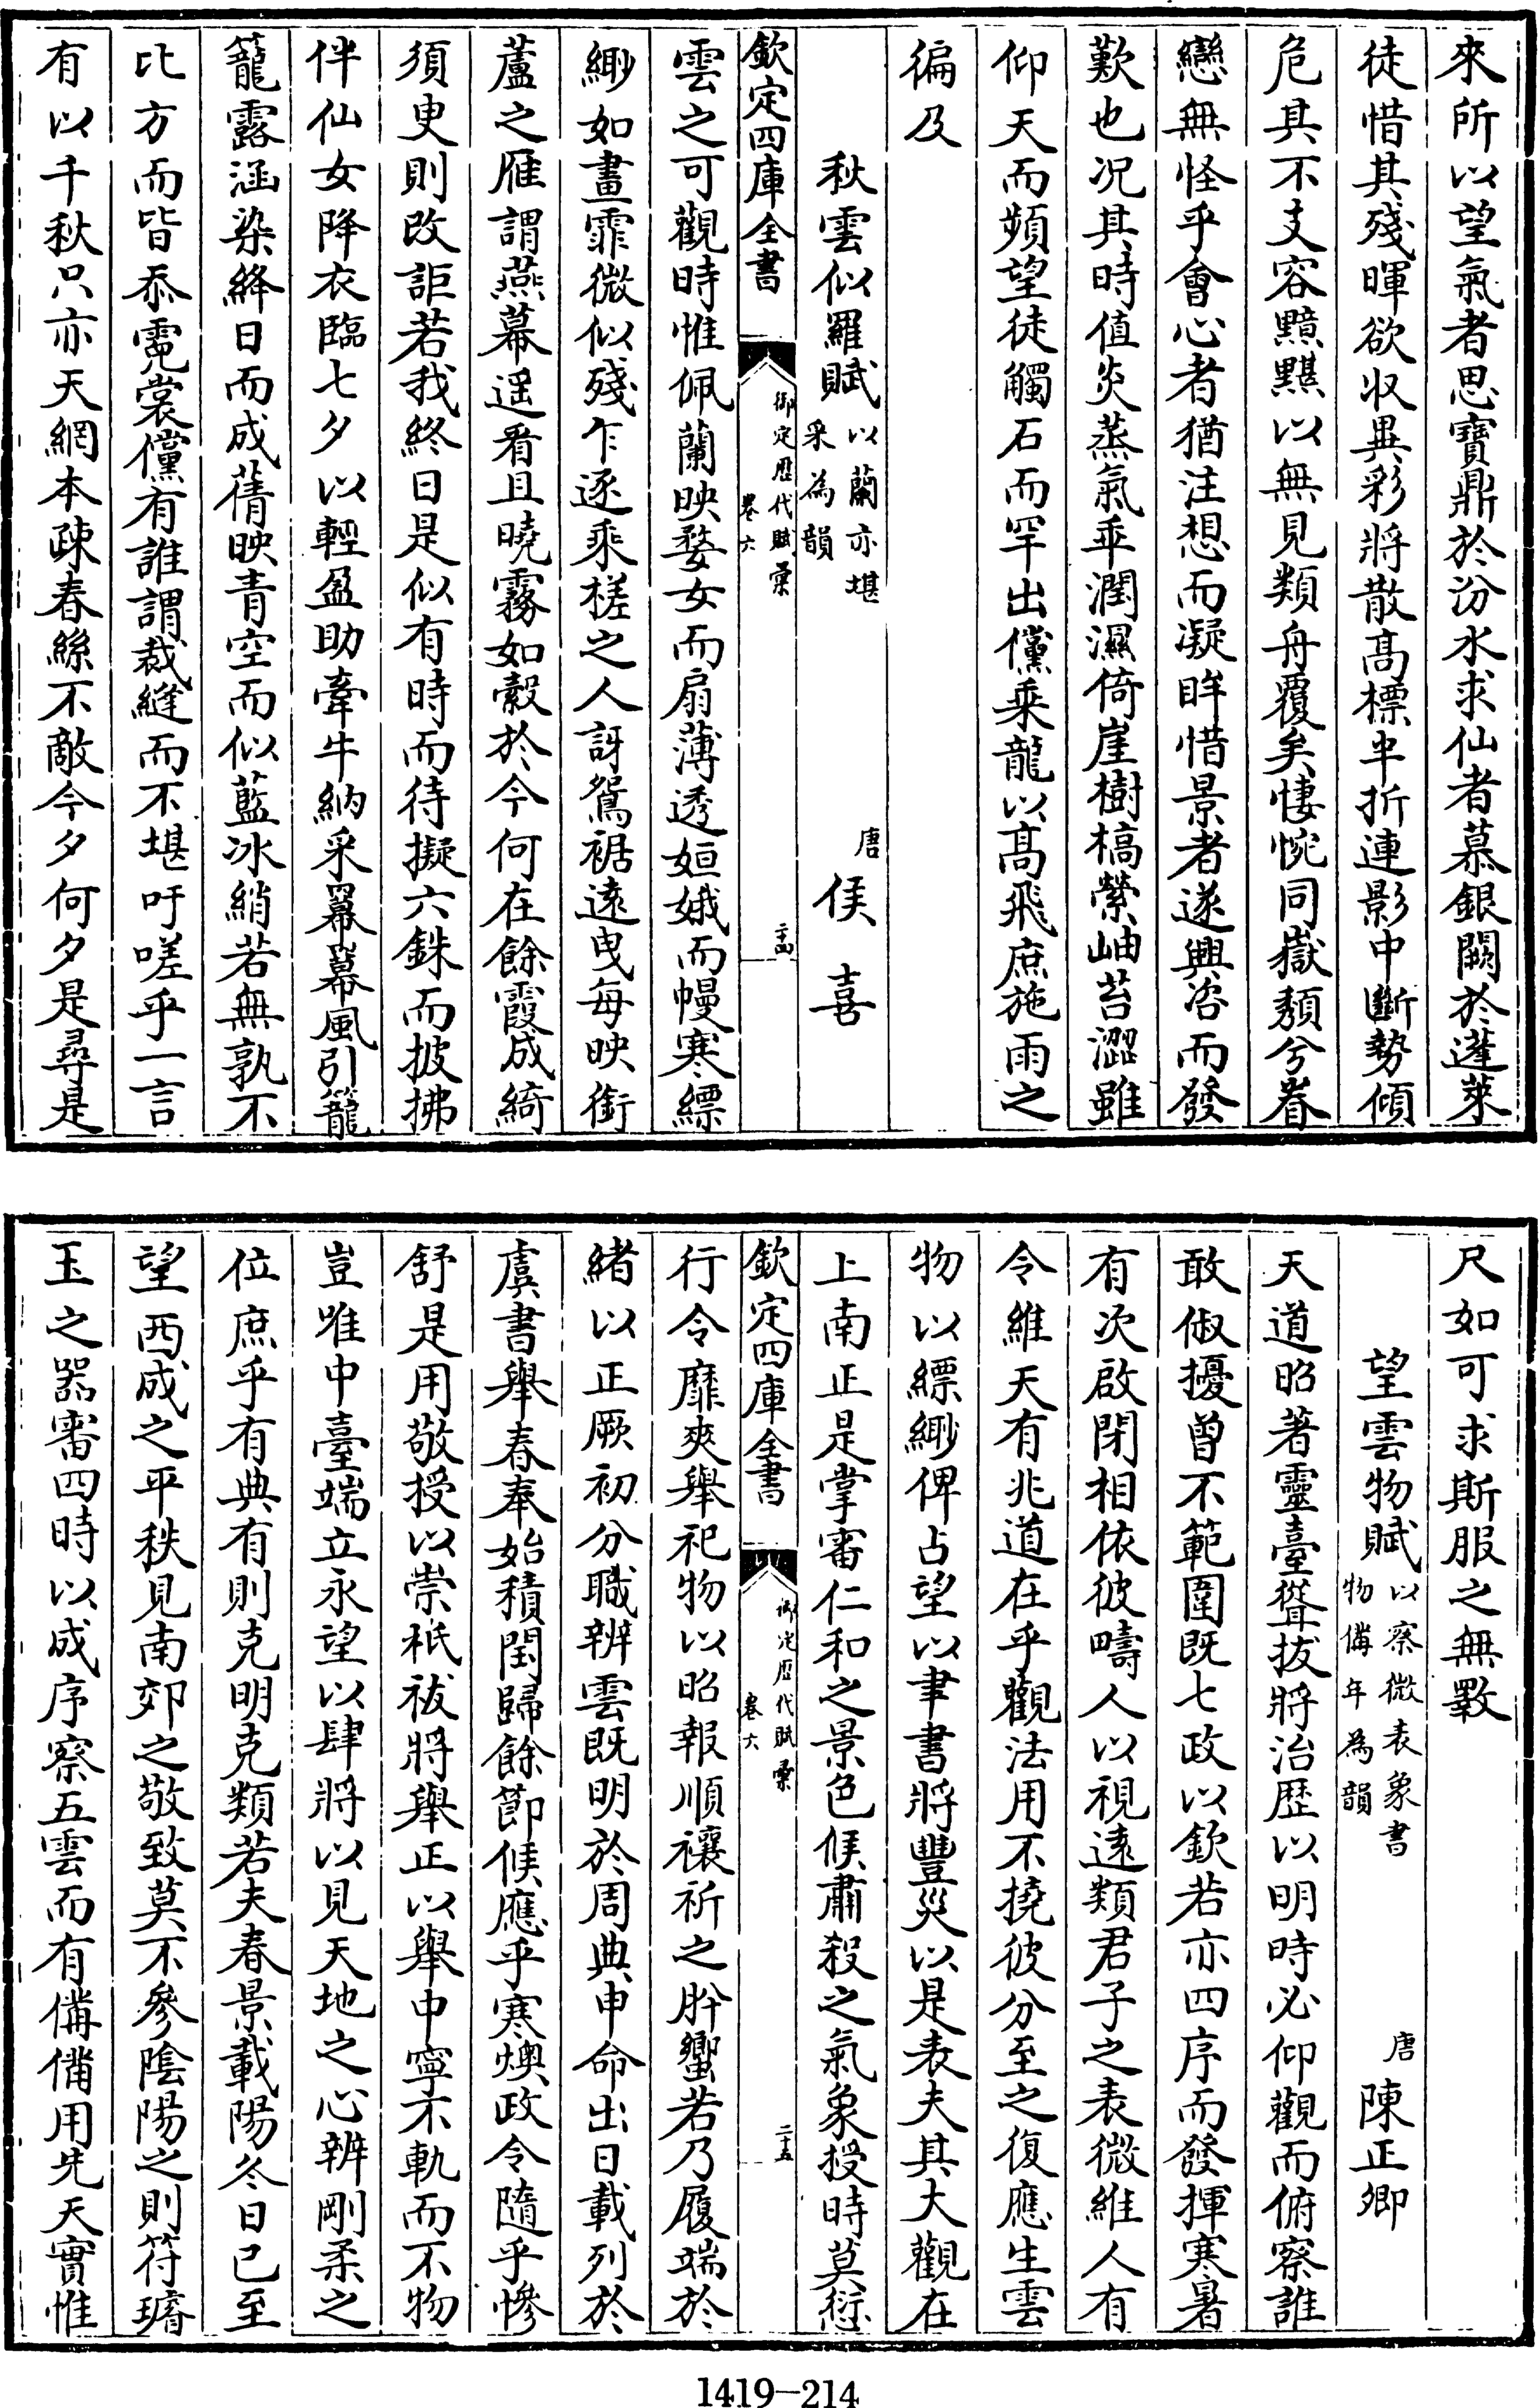 來所以望氣者思寶鼎於汾水求仙者慕銀闕於蓬萊
徒惜其殘暉欲收異彩將散高標半折連影中斷勢傾
危其不支容黯黮以無見類舟覆矣悽惋同嶽頹兮眷
戀無怪乎會心者猶注想而凝眸惜景者遂興咨而發
歎也况其時值炎蒸氣乖潤濕倚崖樹槁縈岫苔澀雖
仰天而頻望徒觸石而罕出儻乘龍以高飛庶施雨之
徧及
秋雲似羅賦以蘭亦堪采為韻
唐 侯喜
欽定四庫全書
御定歷代賦彙
卷六
二十四
雲之可觀時惟佩蘭映婺女而扇薄透姮娥而幔寒縹
緲如畫霏微似殘乍逐乘槎之人訝鴛裾遠曳每映銜
蘆之雁謂燕幕遥看且曉霧如縠於今何在餘霞成綺
須臾則改詎若我終日是似有時而待擬六銖而披拂
伴仙女降衣臨七夕以輕盈助牽牛納采羃羃風引籠
籠露涵染絳日而成蒨映青空而似藍冰綃若無孰不
比方而皆忝霓裳儻有誰謂裁縫而不堪吁嗟乎一言
有以千秋只亦天網本疎春絲不敵今夕何夕是尋是
尺如可求斯服之無斁
望雲物賦以察微表象書物備年為韻
唐 陳正卿
天道昭著靈臺聳拔將治歷以明時必仰觀而俯察誰
敢俶擾曾不範圍既七政以欽若亦四序而發揮寒暑
有次啟閉相依彼疇人以視遠類君子之表微維人有
令維天有兆道在乎觀法用不撓彼分至之復應生雲
物以縹緲俾占望以聿書將豐災以是表夫其大觀在
上南正是掌審仁和之景色候肅殺之氣象授時莫愆
欽定四庫全書
御定歷代賦彙
卷六
二十五
行令靡爽舉祀物以昭報順禳祈之肸蠁若乃履端於
緒以正厥初分職辨雲既明於周典申命出日載列於
虞書舉春奉始積閏歸餘節候應乎寒燠政令隨乎慘
舒是用敬授以崇祇祓將舉正以舉中寧不軌而不物
豈唯中臺端立永望以肆將以見天地之心辨剛柔之
位庶乎有典有則克明克類若夫春景載陽冬日已至
望西成之平秩見南郊之敬致莫不參陰陽之則符璿
玉之器審四時以成序察五雲而有備備用先天實惟
1419—214